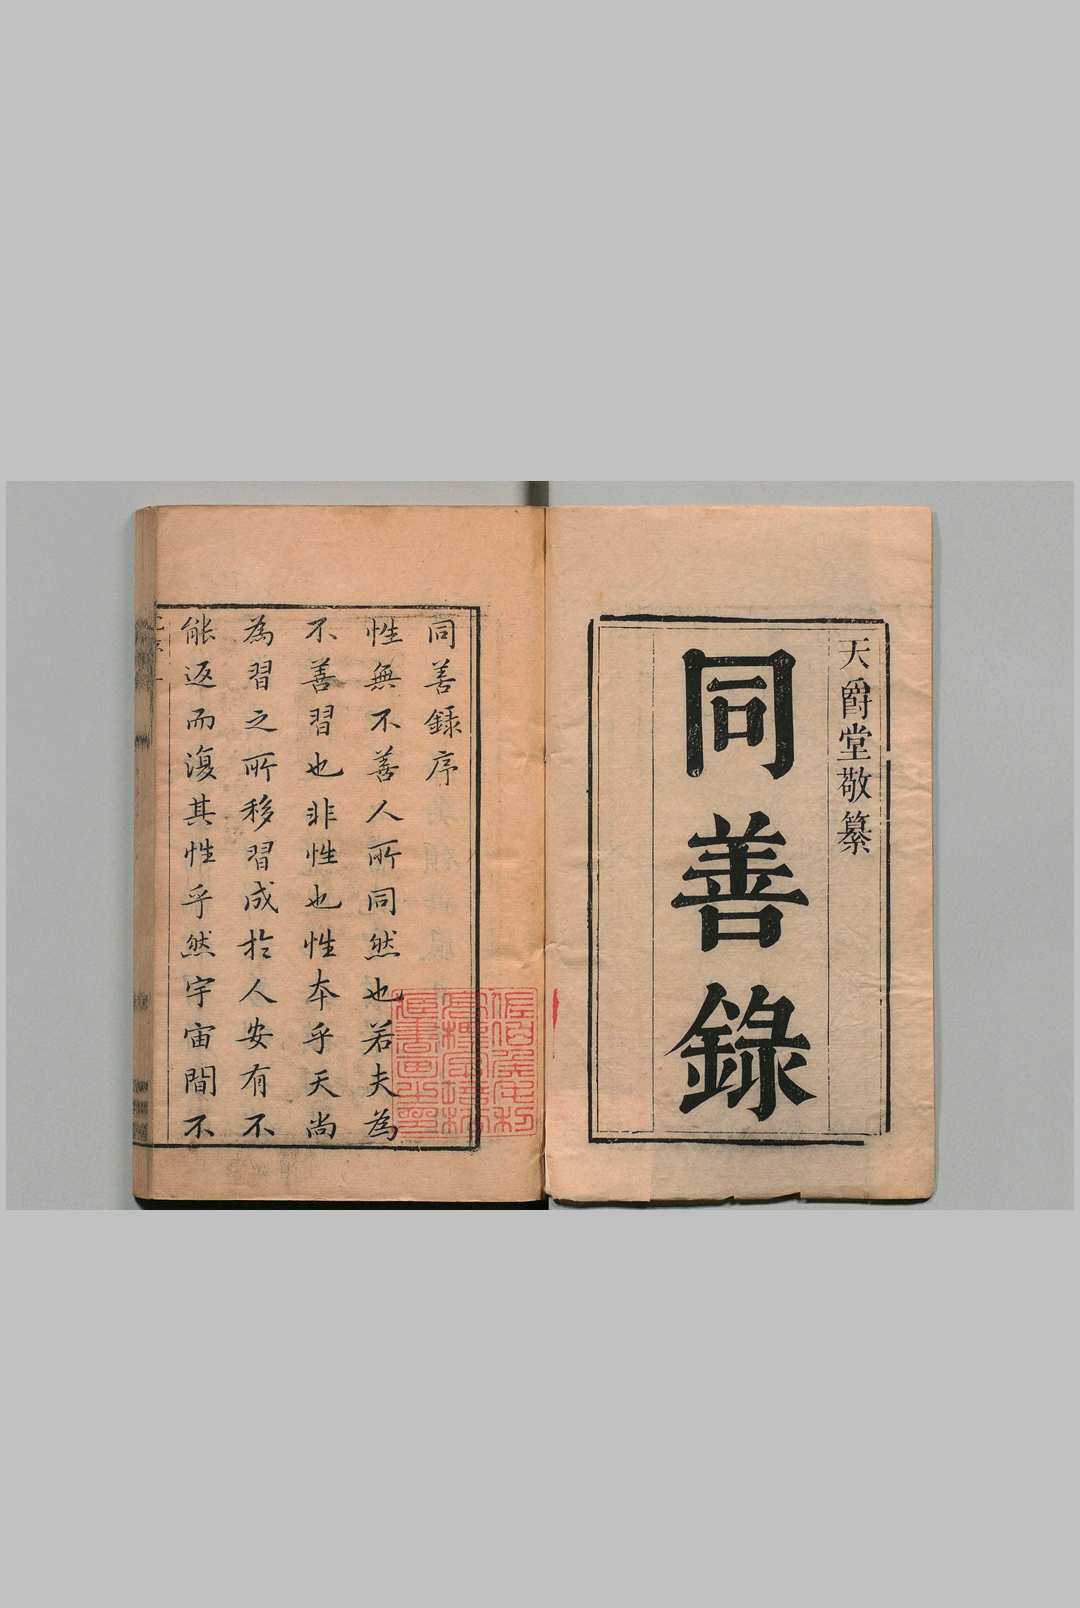 天爵堂敬纂
同善錄
同善録序
性無不善人所同然也若夫為
不善習也非性也性本乎天尚
為習之所移習成於人安有不
能返而復其性乎然宇宙間不
佐伯侯毛利
高標字培松
藏書畫之印